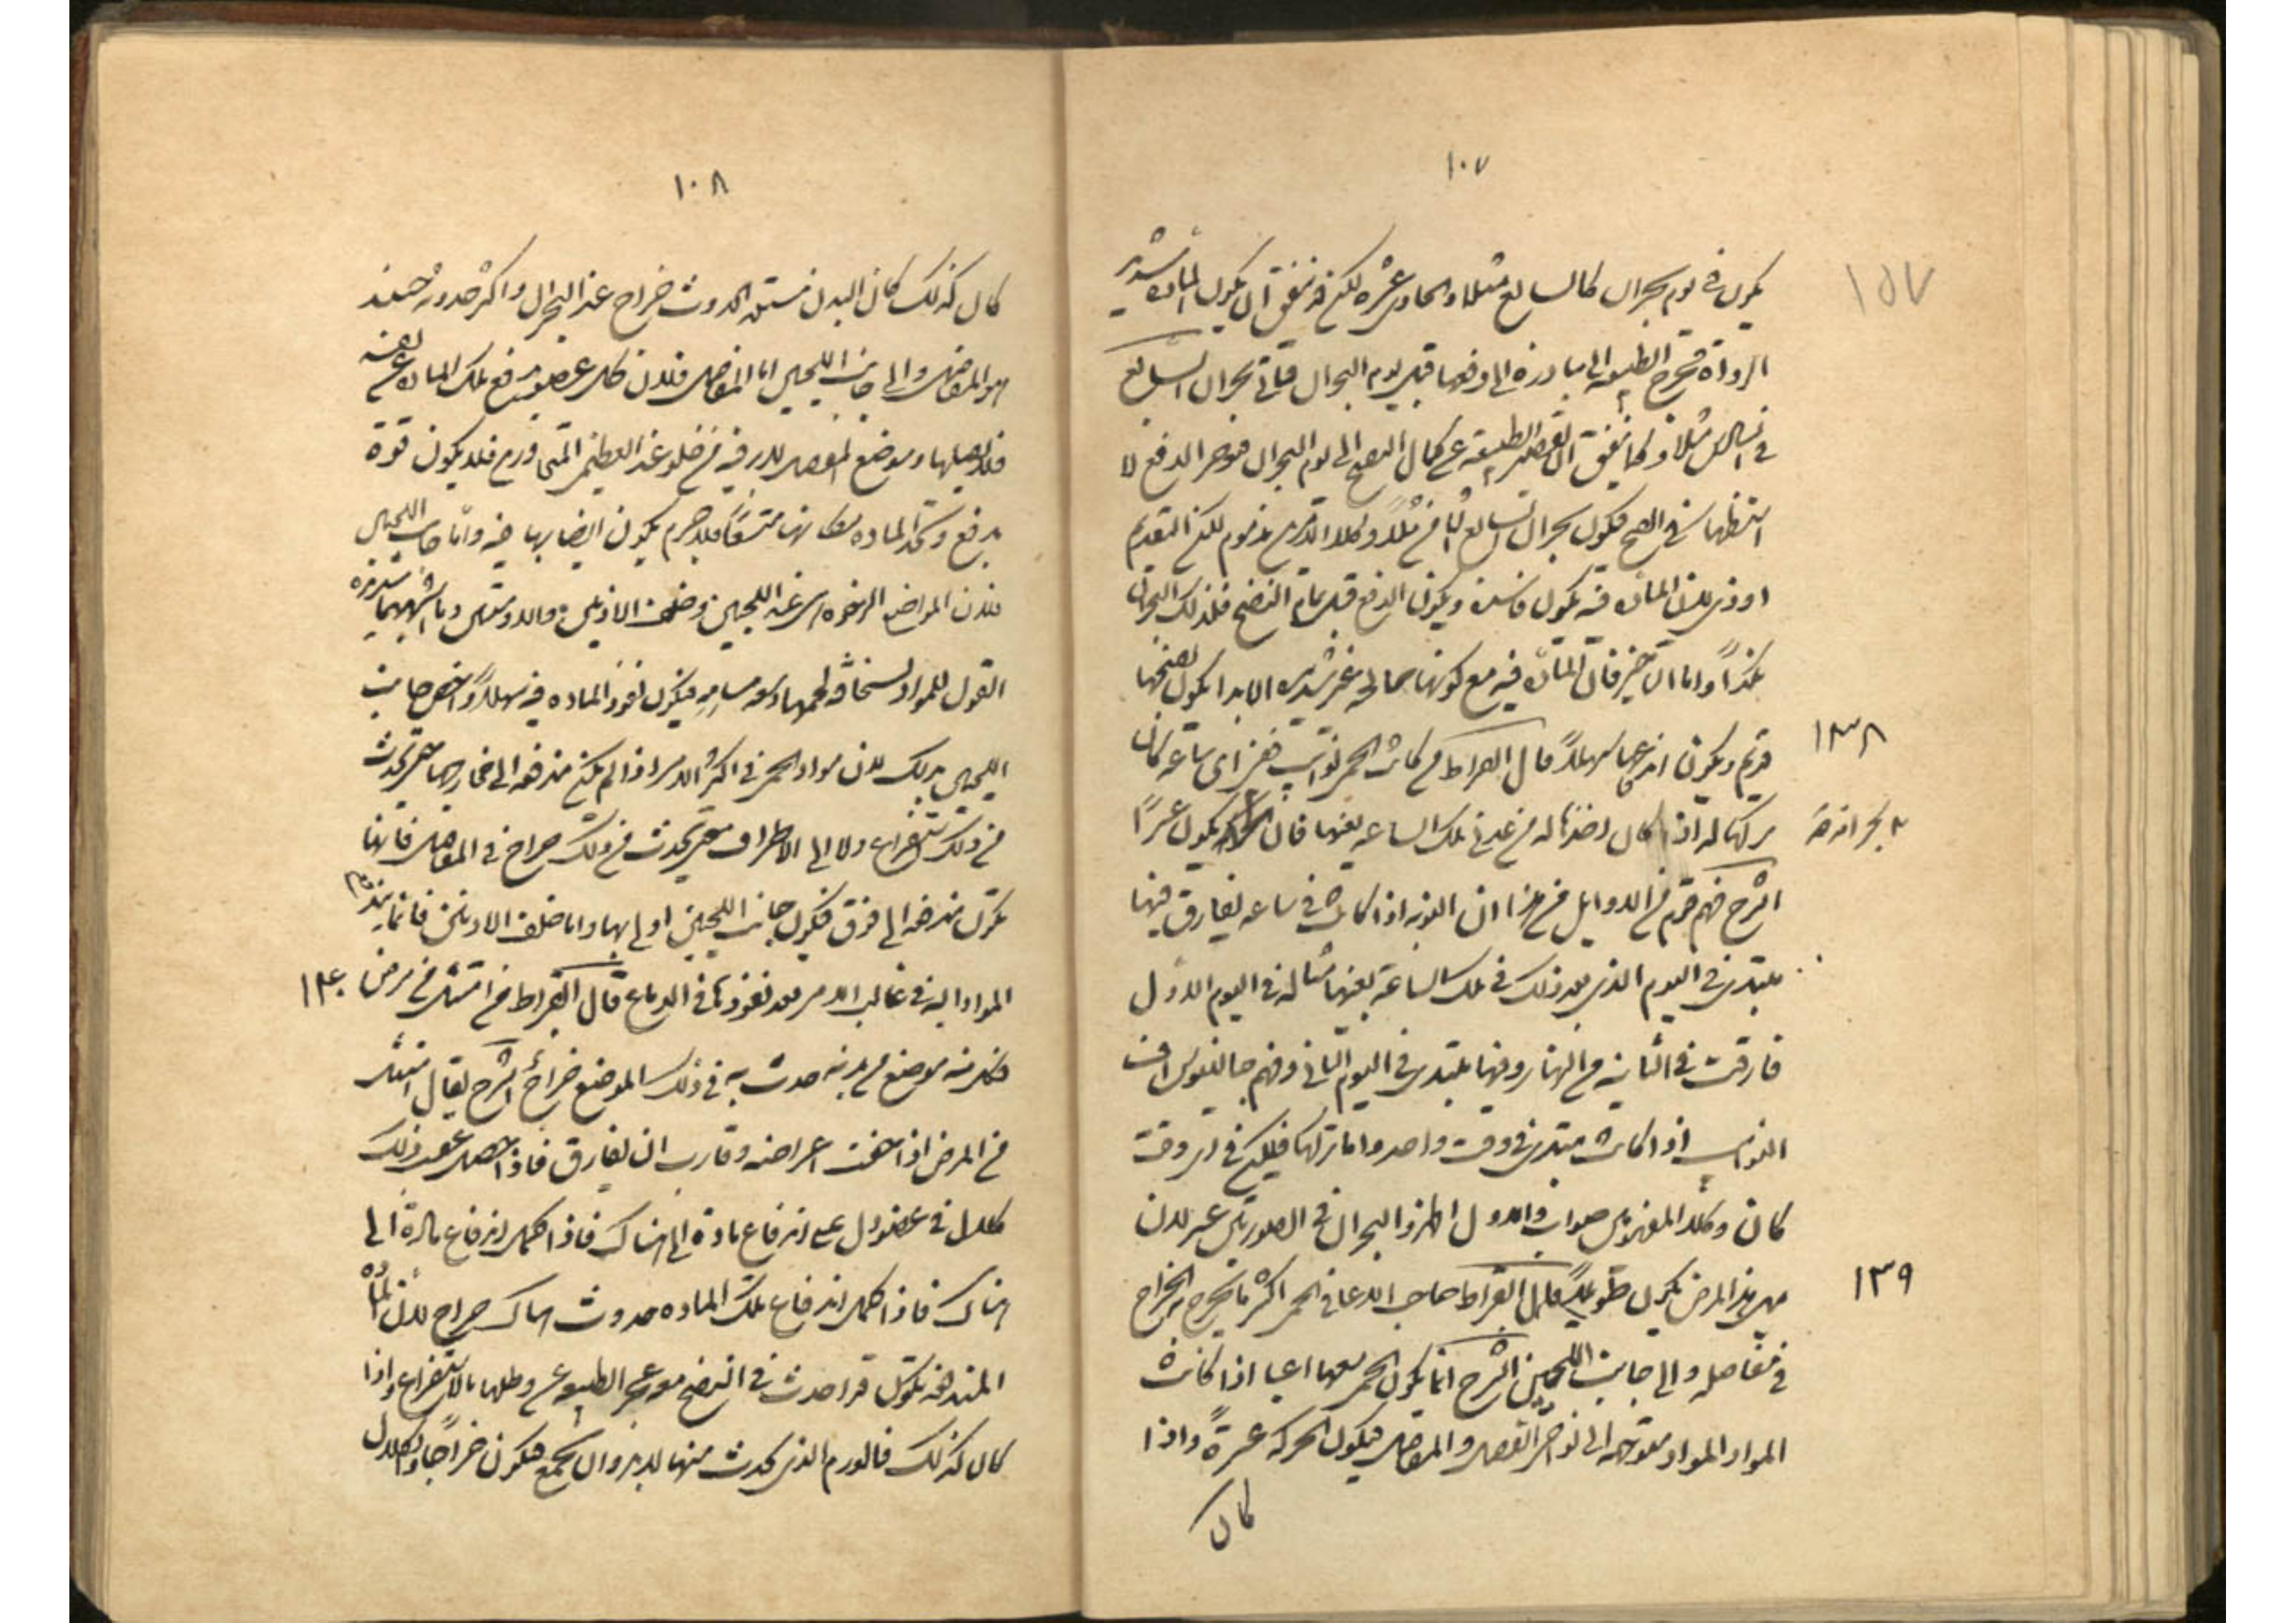 ١٠٧
١٥٧
يكون في يوم بحران كالسابع مثلا والحادي عشر لكنه قد يتفق ان يكون المادة شديدة
الرداة فتحرج الطبيعة الى مبادرة الى دفعها قبل يوم البحران فياتي بحران السابع
في السادس مثلا وكما يتفق ان تقصر الطبيعة عن كمال النضج الى يوم البحران فيؤخر الدفع لا
انتظارها في النضج فيكون بحران السابع في الثامن مثلا وكلا الامرين مذموم لكن التقديم
اردى لان المادة فيه يكون فاسدة ويكون الدفع قبل تمام النضج فلذلك البحران
منذرا واما التاخير فان المادة فيه مع كونها صالحة غير شديدة الايذا يكون نضجها
قد تم ويكون اندفاعها سهلا قال ابقراط من كانت بحمى نوايب ففي اي ساعة كان
١٣٨
تركها له اذا كان اخذها له من غد في تلك الساعة بعينها فان بحرانه يكون عسرا
بحرانه
الشرح فهم قوم من الاوايل من هذا ان النوبة اذا كانت في ساعة يفارق فيها
يبتدي في اليوم الذي بعد ذلك في تلك الساعة بعينها مثاله في اليوم الاول
فارقت في الثانية من النهار وفيها يبتدي في اليوم الثاني وفهم جالينوس ان
النوايب اذا كانت تبتدي في وقت واحد واما تركها فليكن في اي وقت
كان وكلا المفهومين صواب والاول اظهر والبحران في الصورتين عسر لان
مثل هذا المرض يكون طويلا قال ابقراط صاحب الاعيا في الحمى اكثر ما يخرج به الخراج
١٣٩
في مفاصله والى جانب اللحيين الشرح انما يكون الحمى معها اعيا اذا كانت
المواد المواد متوجهة الى نواحي العضل والمفاصل فيكون الحركة عسرة واذا
كان
١٠٨
كان كذلك كان البدن مستعدا لحدوث خراج عند البحران واكثر حدوثه حينئذ
هو المفاصل والى جانب اللحيين اما المفاصل فلان كل عضو يدفع تلك المادة عن نفسه
فلا يقبلها وموضع المفصل لا بد فيه من خلو عند العظمين المتجاورين فلا يكون قوة
يدفع وتجد المادة مكانها متسعا فلا جرم يكون انصبابها فيه واما جانب اللحيين
فلان المواضع الرخوة اي عند اللحيين وخلف الاذنين والاربيتين وما اشبههما شديدة
القبول للمواد لسخافة لحمها وسعة مسامه فيكون نفوذ المادة فيه سهلا واختص جانب
اللحيين بذلك لان مواد الحمى في اكثر الامر اذا لم يكن مندفعة الى خارج حتى تحدث
من ذلك استفراغ ولا الى الاطراف حتى تحدث من ذلك خراج في المفاصل فانها
يكون مندفعة الى فوق فيكون جانب اللحيين اولى بها واما خلف الاذنين فانما يندفع
المواد اليه في غالب الامر بعد نفوذها في الدماغ قال ابقراط من انتشل من مرض
١٤٠
فكل منه موضع من بدنه حدث به في ذلك الموضع خراج الشرح يقال انتشل
من المرض اذا خفت اعراضه وقارب ان يفارق فاذا حصل عقيب ذلك
كلال في عضو دل على اندفاع مادة الى هناك فاذا كمل اندفاع مادة الى
هناك فاذا كمل اندفاع تلك المادة حدوث هناك خراج لان المادة
المندفعة يكون قد احدث في النضج مع عجز الطبيعة عن دفعها بالاستفراغ واذا
كان كذلك فالورم الذي يحدث منها لا بد وان يجمع فيكون خراجا والكلال